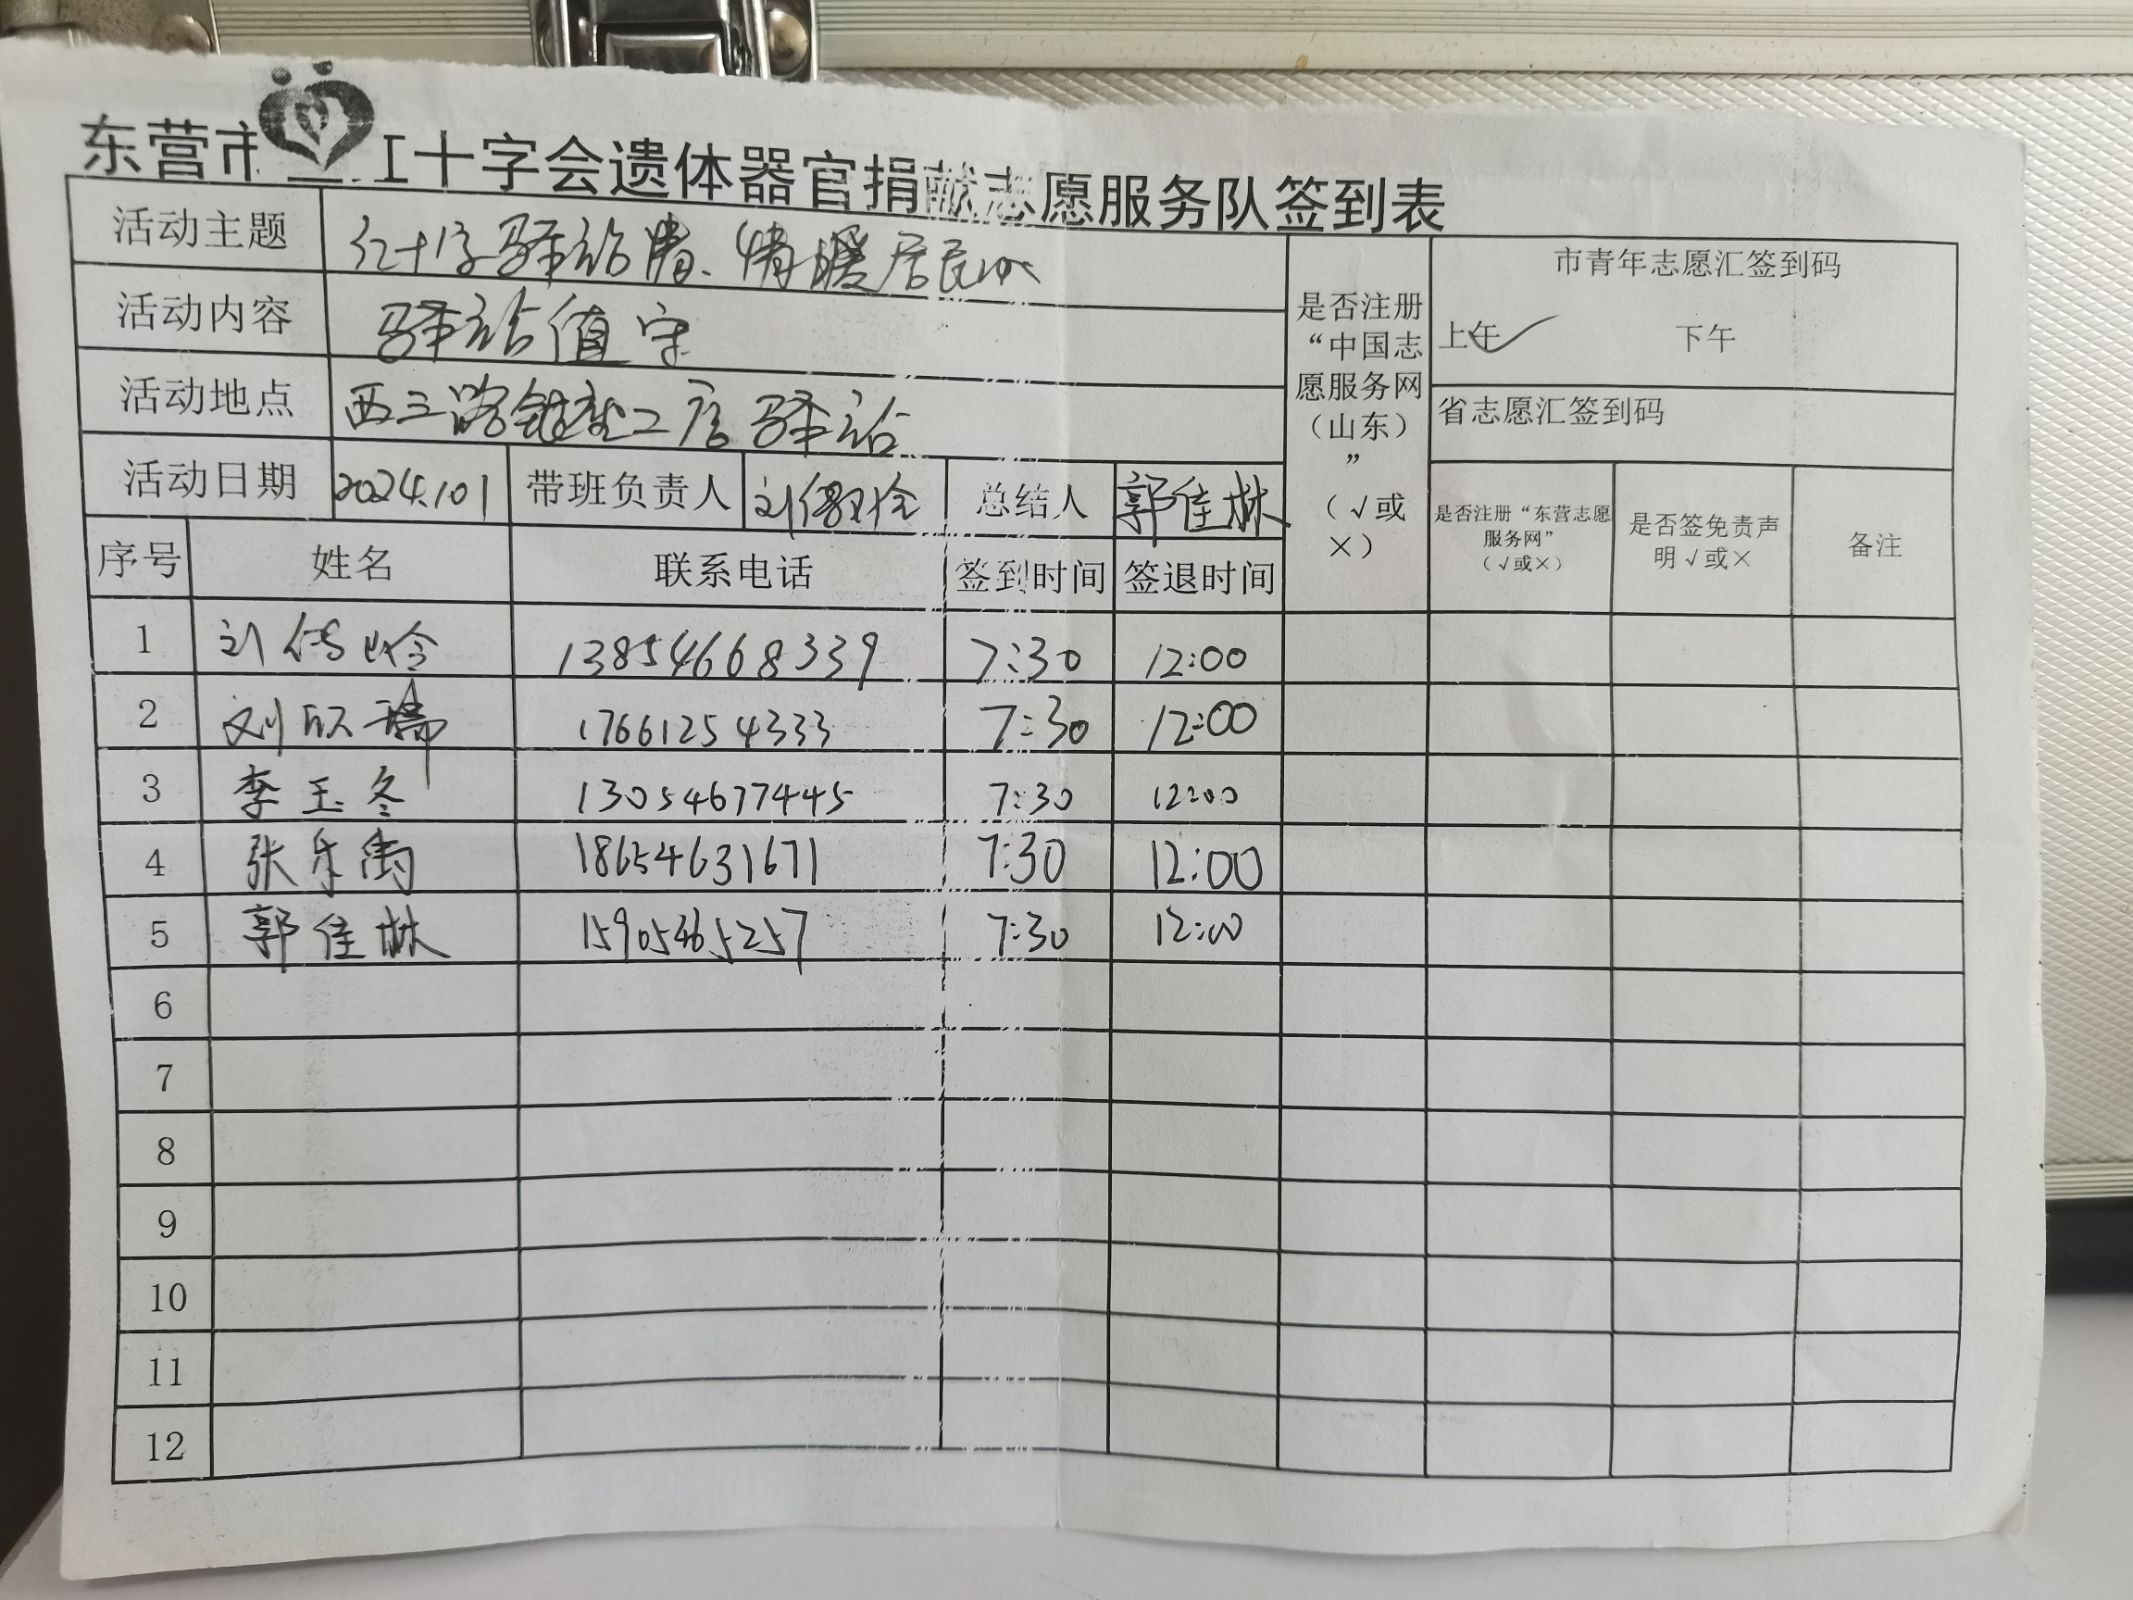 东营市 红十字会遗体器官捐献志愿服务队签到表
活动主题 红十字驿站情、情暖居民心
活动内容 驿站值守
活动地点 西三路 驿站
活动日期 2024.10.1 带班负责人 刘传玲 总结人 郭佳林
是否注册“中国志愿服务网（山东）”（√或×）
市青年志愿汇签到码
上午✓ 下午
省志愿汇签到码
是否注册“东营志愿服务网”（√或×） 是否签免责声明√或× 备注
序号 姓名 联系电话 签到时间 签退时间
1 刘传玲 13854668339 7:30 12:00
2 刘欣瑞 17661254333 7:30 12:00
3 李玉冬 13054677445 7:30 12:00
4 张乐禹 18654631671 7:30 12:00
5 郭佳林 15905465257 7:30 12:00
6
7
8
9
10
11
12